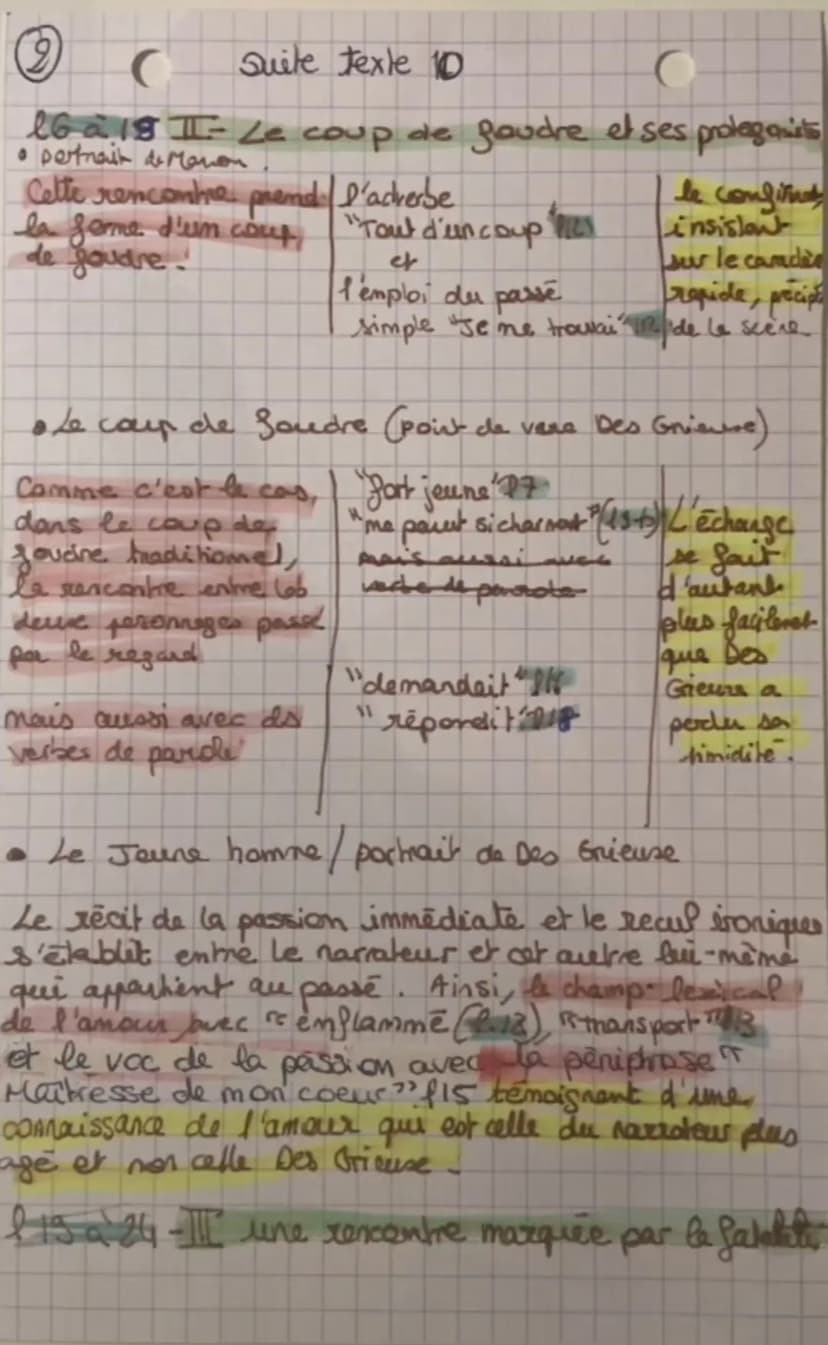 2
Suite texte 10
l6 à 18 II- Le coup de foudre et ses protagonists
• portrait de Manon.
Cette rencontre prend
la forme d'un coup
de foudre.
l'adverbe
"Tout d'un coup"
et
l'emploi du passé
simple "Je me trouvai" l12
le confirment
insistant
sur le caractère
rapide, précipi
de la scène
• Le coup de foudre (point de vue Des Grieux)
Comme c'est le cas,
dans le coup de
foudre traditionnel,
la rencontre entre les
deux personnages passe
par le regard
mais aussi avec des
verbes de parole
"fort jeune" l7
"me parut si charmant"
mais aussi avec
verbe de parole
"demandait"
"répondit" l18
L'échange
se fait
d'autant
plus facilement
que Des
Grieux a
perdu sa
timidité.
• Le Jeune homme / portrait de Des Grieux
Le récit de la passion immédiate et le recul ironiques
s'établit entre le narrateur et cet autre lui-même
qui appartient au passé. Ainsi, le champ lexical
de l'amour avec "enflammé (l.13), "transport" l13
et le voc de la passion avec la périphrase "
Maîtresse de mon coeur" l15 témoignant d'une
connaissance de l'amour qui est celle du narrateur plus
agé et non celle Des Grieux.
l 19 à 24 - III une rencontre marquée par la fatalité